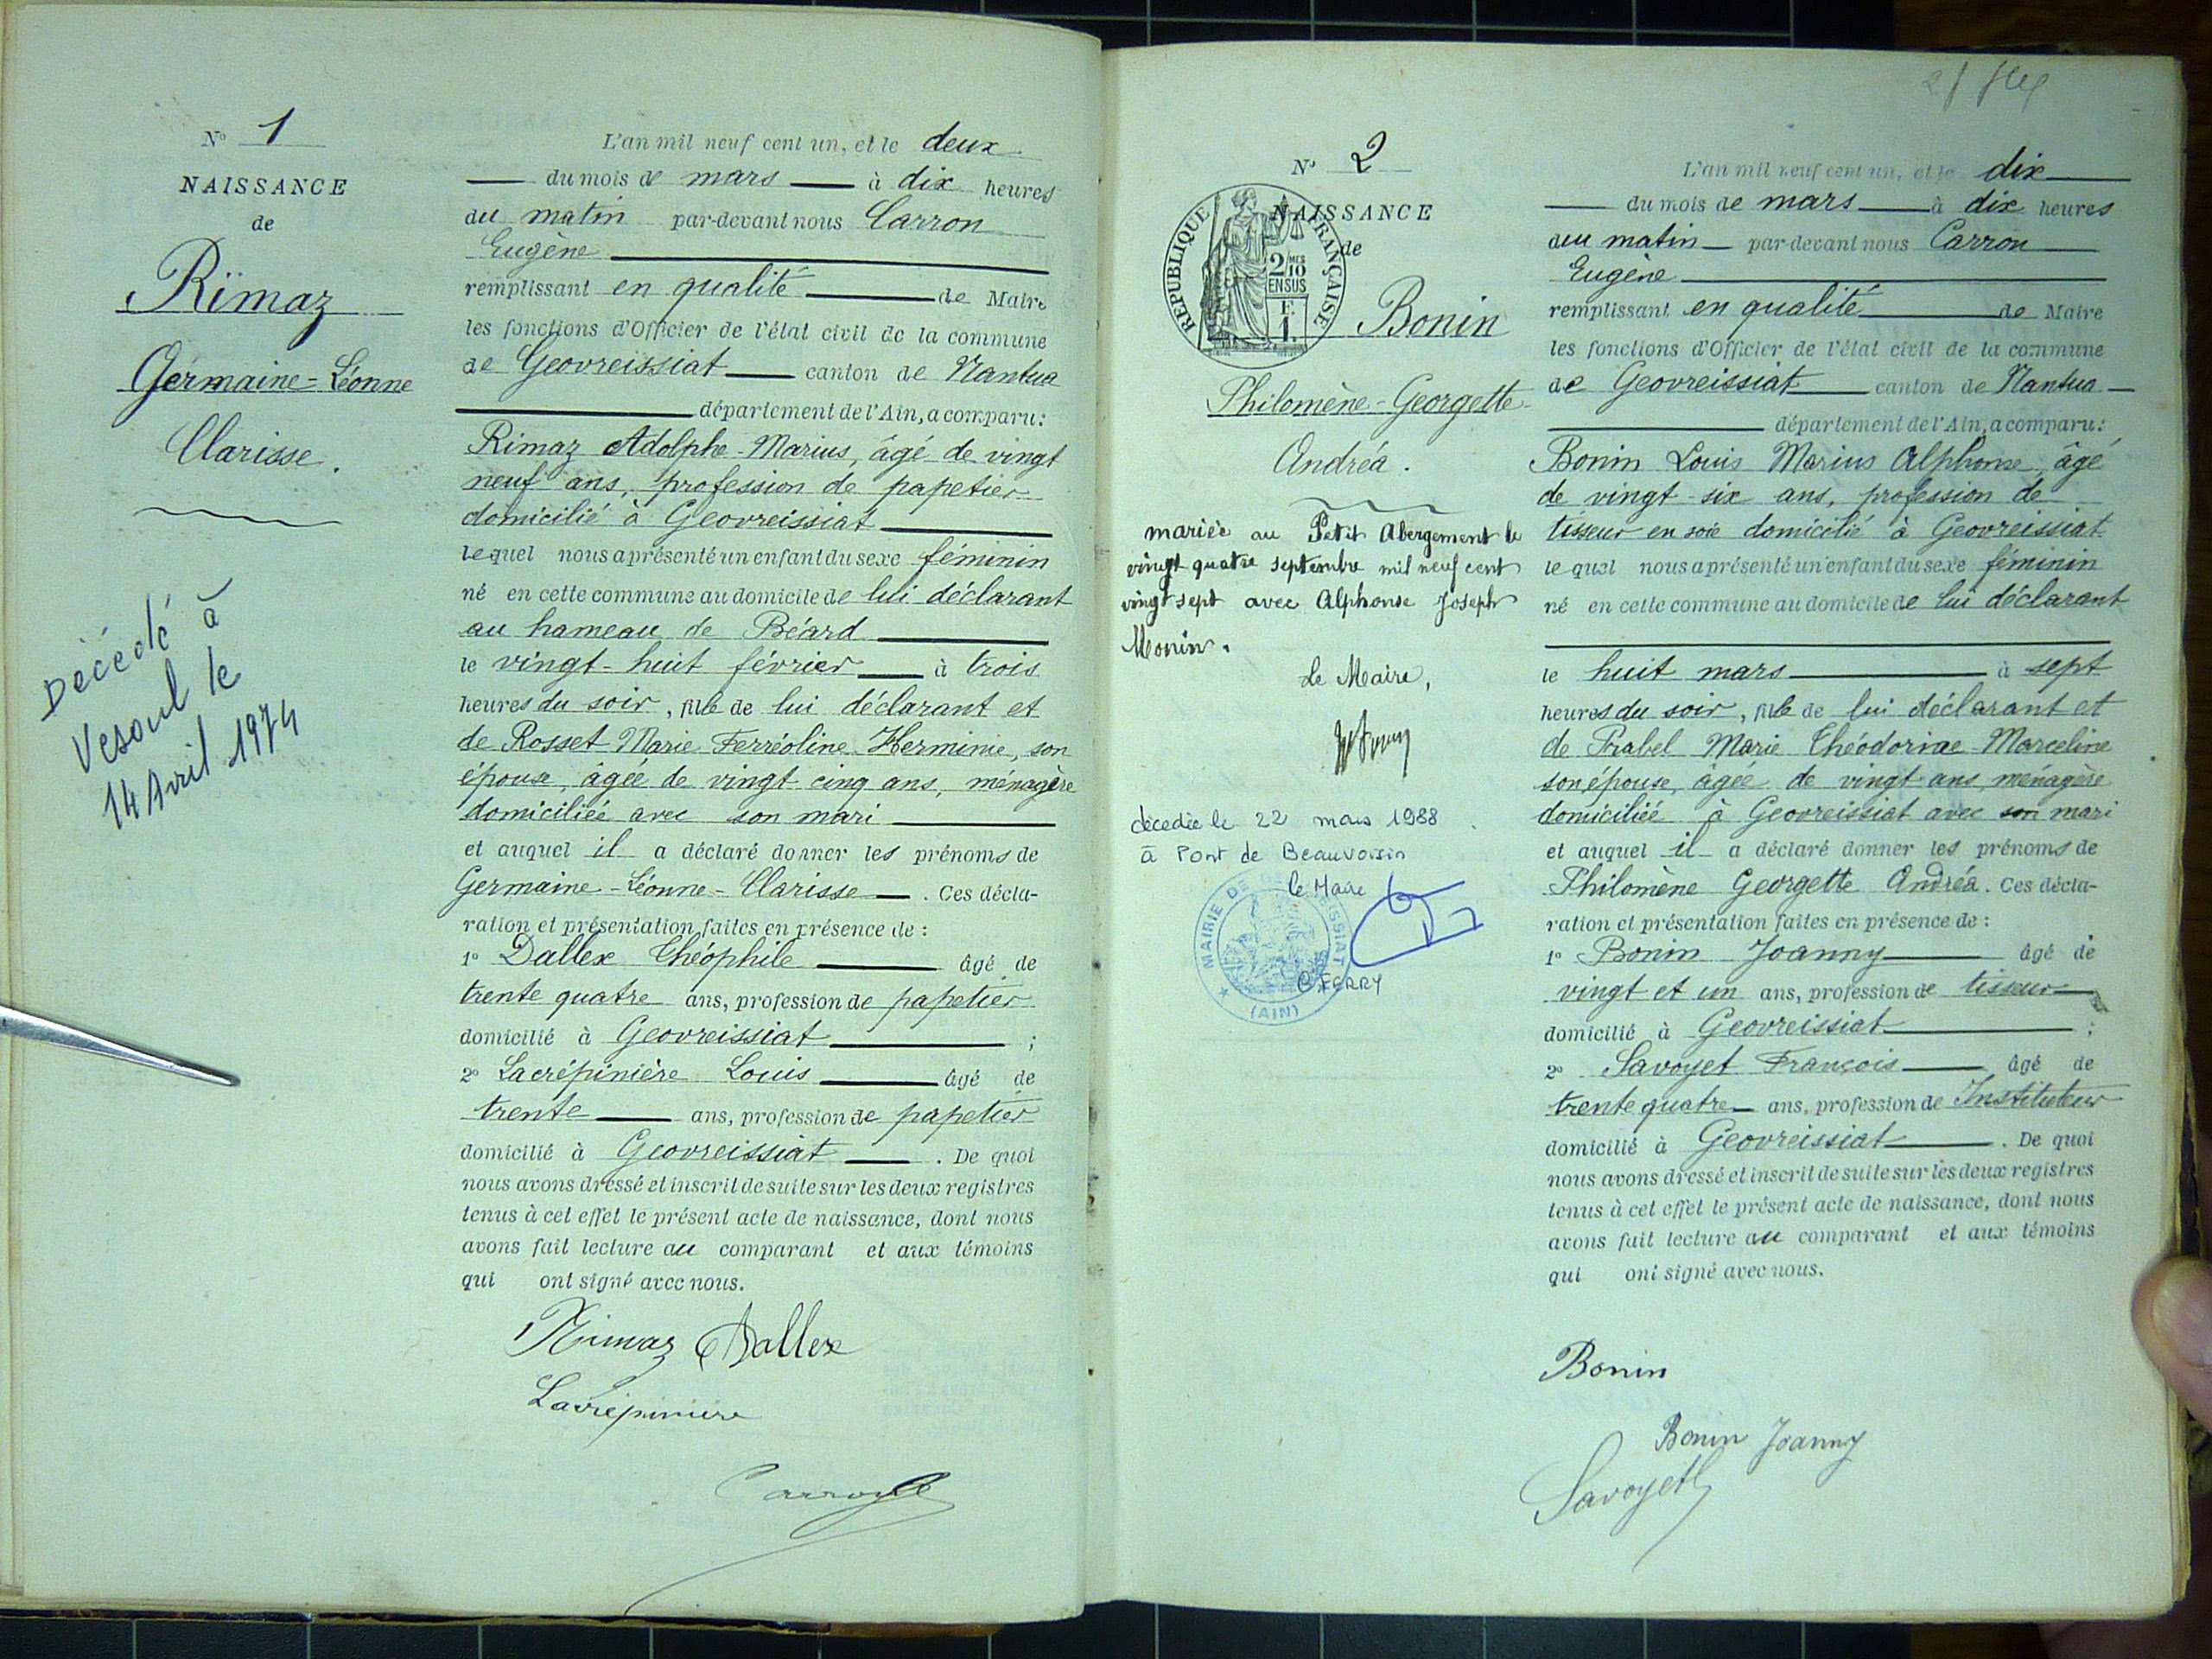 Nº 1
NAISSANCE
de
Rimaz
Germaine-Léonne
Clarisse.
Décédé à
Vesoul le
14 Avril 1974
L'an mil neuf cent un, et le deux
du mois de mars à dix heures
du matin par-devant nous Carron
Eugène
remplissant en qualité de Maire
les fonctions d'Officier de l'état civil de la commune
de Geovreissiat canton de Nantua
département de l'Ain, a comparu:
Rimaz Adolphe-Marius, âgé de vingt
neuf ans, profession de papetier
domicilié à Geovreissiat
lequel nous a présenté un enfant du sexe féminin
né en cette commune au domicile de lui déclarant
au hameau de Béard
le vingt-huit février à trois
heures du soir, fille de lui déclarant et
de Rosset Marie Ferréoline Herminie, son
épouse, âgée de vingt cinq ans, ménagère
domiciliée avec son mari
et auquel il a déclaré donner les prénoms de
Germaine-Léonne-Clarisse. Ces décla-
ration et présentation faites en présence de :
1º Dallex Théophile âgé de
trente quatre ans, profession de papetier
domicilié à Geovreissiat ;
2º Lacrépinière Louis âgé de
trente ans, profession de papetier
domicilié à Geovreissiat. De quoi
nous avons dressé et inscrit de suite sur les deux registres
tenus à cet effet le présent acte de naissance, dont nous
avons fait lecture au comparant et aux témoins
qui ont signé avec nous.
Rimaz Dallex
Lacrépinière
Carron
Nº 2
NAISSANCE
de
RÉPUBLIQUE FRANÇAISE
2/10 MES
EN SUS
F.
1.
Bonin
Philomène-Georgette
Andréa.
mariée au Petit Abergement le
vingt quatre septembre mil neuf cent
vingt sept avec Alphonse Joseph
Monin.
Le Maire,
décédée le 22 mars 1988
à Pont de Beauvoisin
le Maire
MAIRIE DE GEOVREISSIAT
(AIN)
FERRY
L'an mil neuf cent un, et le dix
du mois de mars à dix heures
du matin par-devant nous Carron
Eugène
remplissant en qualité de Maire
les fonctions d'Officier de l'état civil de la commune
de Geovreissiat canton de Nantua
département de l'Ain, a comparu:
Bonin Louis Marius Alphonse, âgé
de vingt-six ans, profession de
tisseur en soie domicilié à Geovreissiat
lequel nous a présenté un enfant du sexe féminin
né en cette commune au domicile de lui déclarant
le huit mars à sept
heures du soir, fille de lui déclarant et
de Prabel Marie Théodorine Marceline
son épouse, âgée de vingt ans, ménagère
domiciliée à Geovreissiat avec son mari
et auquel il a déclaré donner les prénoms de
Philomène Georgette Andréa. Ces décla-
ration et présentation faites en présence de :
1º Bonin Joanny âgé de
vingt et un ans, profession de tisseur
domicilié à Geovreissiat ;
2º Savoyet François âgé de
trente quatre ans, profession de Instituteur
domicilié à Geovreissiat. De quoi
nous avons dressé et inscrit de suite sur les deux registres
tenus à cet effet le présent acte de naissance, dont nous
avons fait lecture au comparant et aux témoins
qui ont signé avec nous.
Bonin
Bonin Joanny
Savoyet